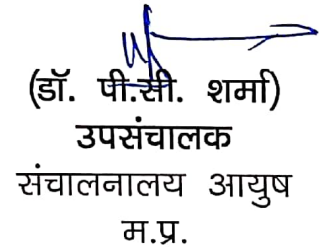 (डॉ. पी.सी. शर्मा)
उपसंचालक
संचालनालय आयुष
म.प्र.